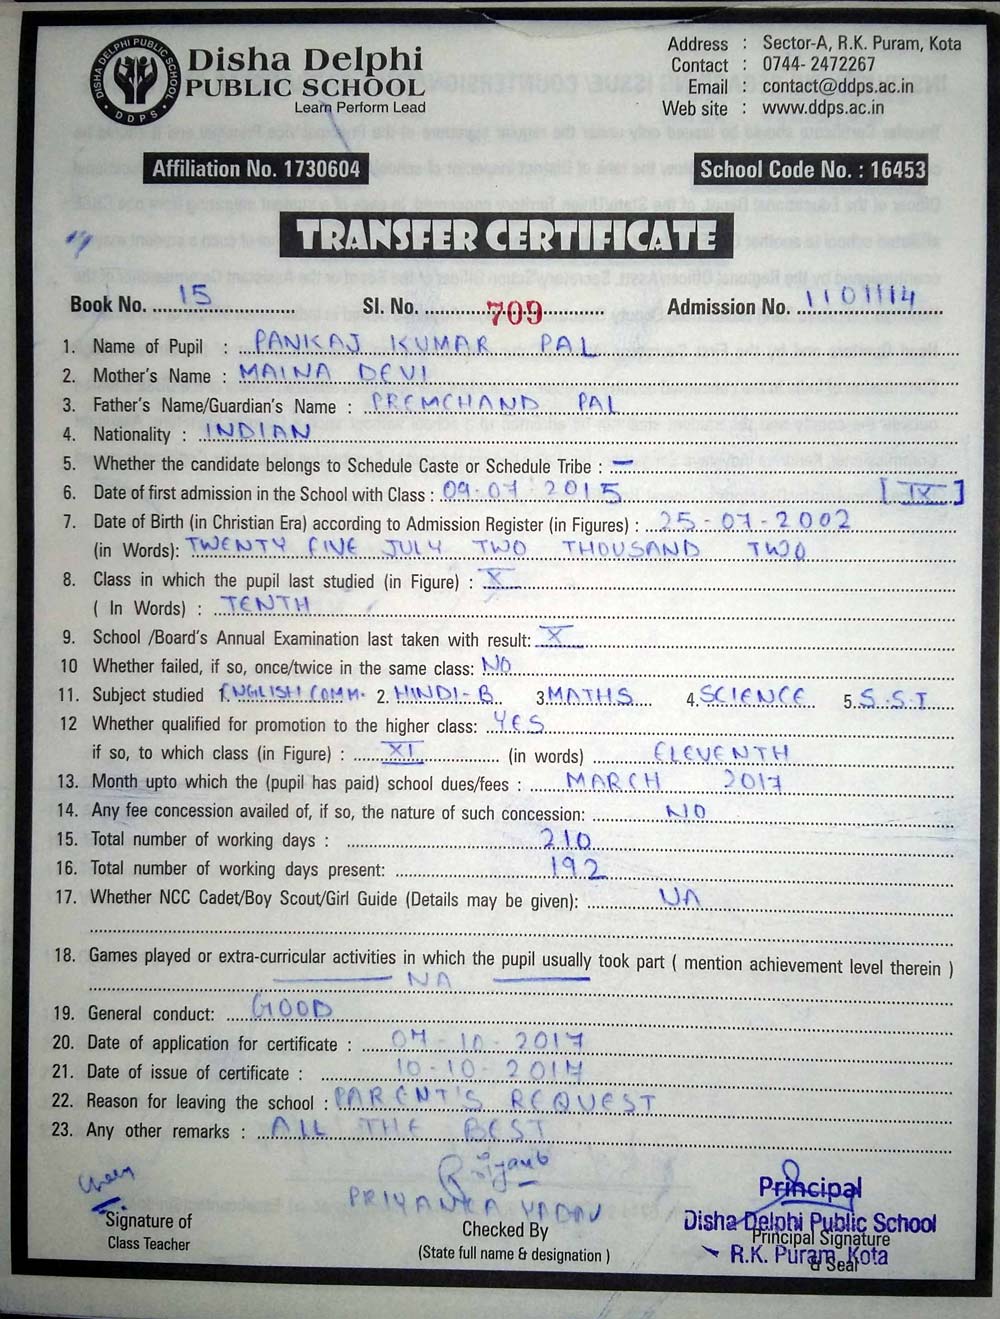 DISHA DELPHI PUBLIC SCHOOL
DDPS
Disha Delphi
PUBLIC SCHOOL
Learn Perform Lead
Address : Sector-A, R.K. Puram, Kota
Contact : 0744- 2472267
Email : contact@ddps.ac.in
Web site : www.ddps.ac.in
Affiliation No. 1730604
School Code No. : 16453
TRANSFER CERTIFICATE
Book No. 15 Sl. No. 709 Admission No. 1101114
1. Name of Pupil : PANKAJ KUMAR PAL
2. Mother's Name : MAINA DEVI
3. Father's Name/Guardian's Name : PREMCHAND PAL
4. Nationality : INDIAN
5. Whether the candidate belongs to Schedule Caste or Schedule Tribe : –
6. Date of first admission in the School with Class : 09-07-2015 [IX]
7. Date of Birth (in Christian Era) according to Admission Register (in Figures) : 25-07-2002
(in Words): TWENTY FIVE JULY TWO THOUSAND TWO
8. Class in which the pupil last studied (in Figure) : X
( In Words) : TENTH
9. School /Board's Annual Examination last taken with result: X
10 Whether failed, if so, once/twice in the same class: NO
11. Subject studied 1. ENGLISH COMM. 2. HINDI-B 3. MATHS 4. SCIENCE 5. S.S.T
12 Whether qualified for promotion to the higher class: YES
if so, to which class (in Figure) : XI (in words) ELEVENTH
13. Month upto which the (pupil has paid) school dues/fees : MARCH 2017
14. Any fee concession availed of, if so, the nature of such concession: NO
15. Total number of working days : 210
16. Total number of working days present: 192
17. Whether NCC Cadet/Boy Scout/Girl Guide (Details may be given): NA
18. Games played or extra-curricular activities in which the pupil usually took part ( mention achievement level therein )
NA
19. General conduct: GOOD
20. Date of application for certificate : 07-10-2017
21. Date of issue of certificate : 10-10-2017
22. Reason for leaving the school : PARENT'S REQUEST
23. Any other remarks : ALL THE BEST
PRIYANKA YADAV
Signature of
Class Teacher
Checked By
(State full name & designation )
Principal
Disha Delphi Public School
Principal Signature
R.K. Puram, Kota
& Seal